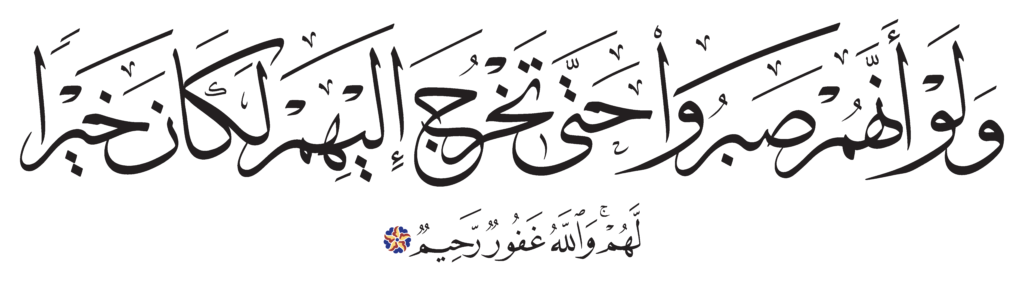 وَلَوْ أَنَّهُمْ صَبَرُوا حَتَّىٰ تَخْرُجَ إِلَيْهِمْ لَكَانَ خَيْرًا
لَّهُمْ ۚ وَٱللَّهُ غَفُورٌ رَّحِيمٌ